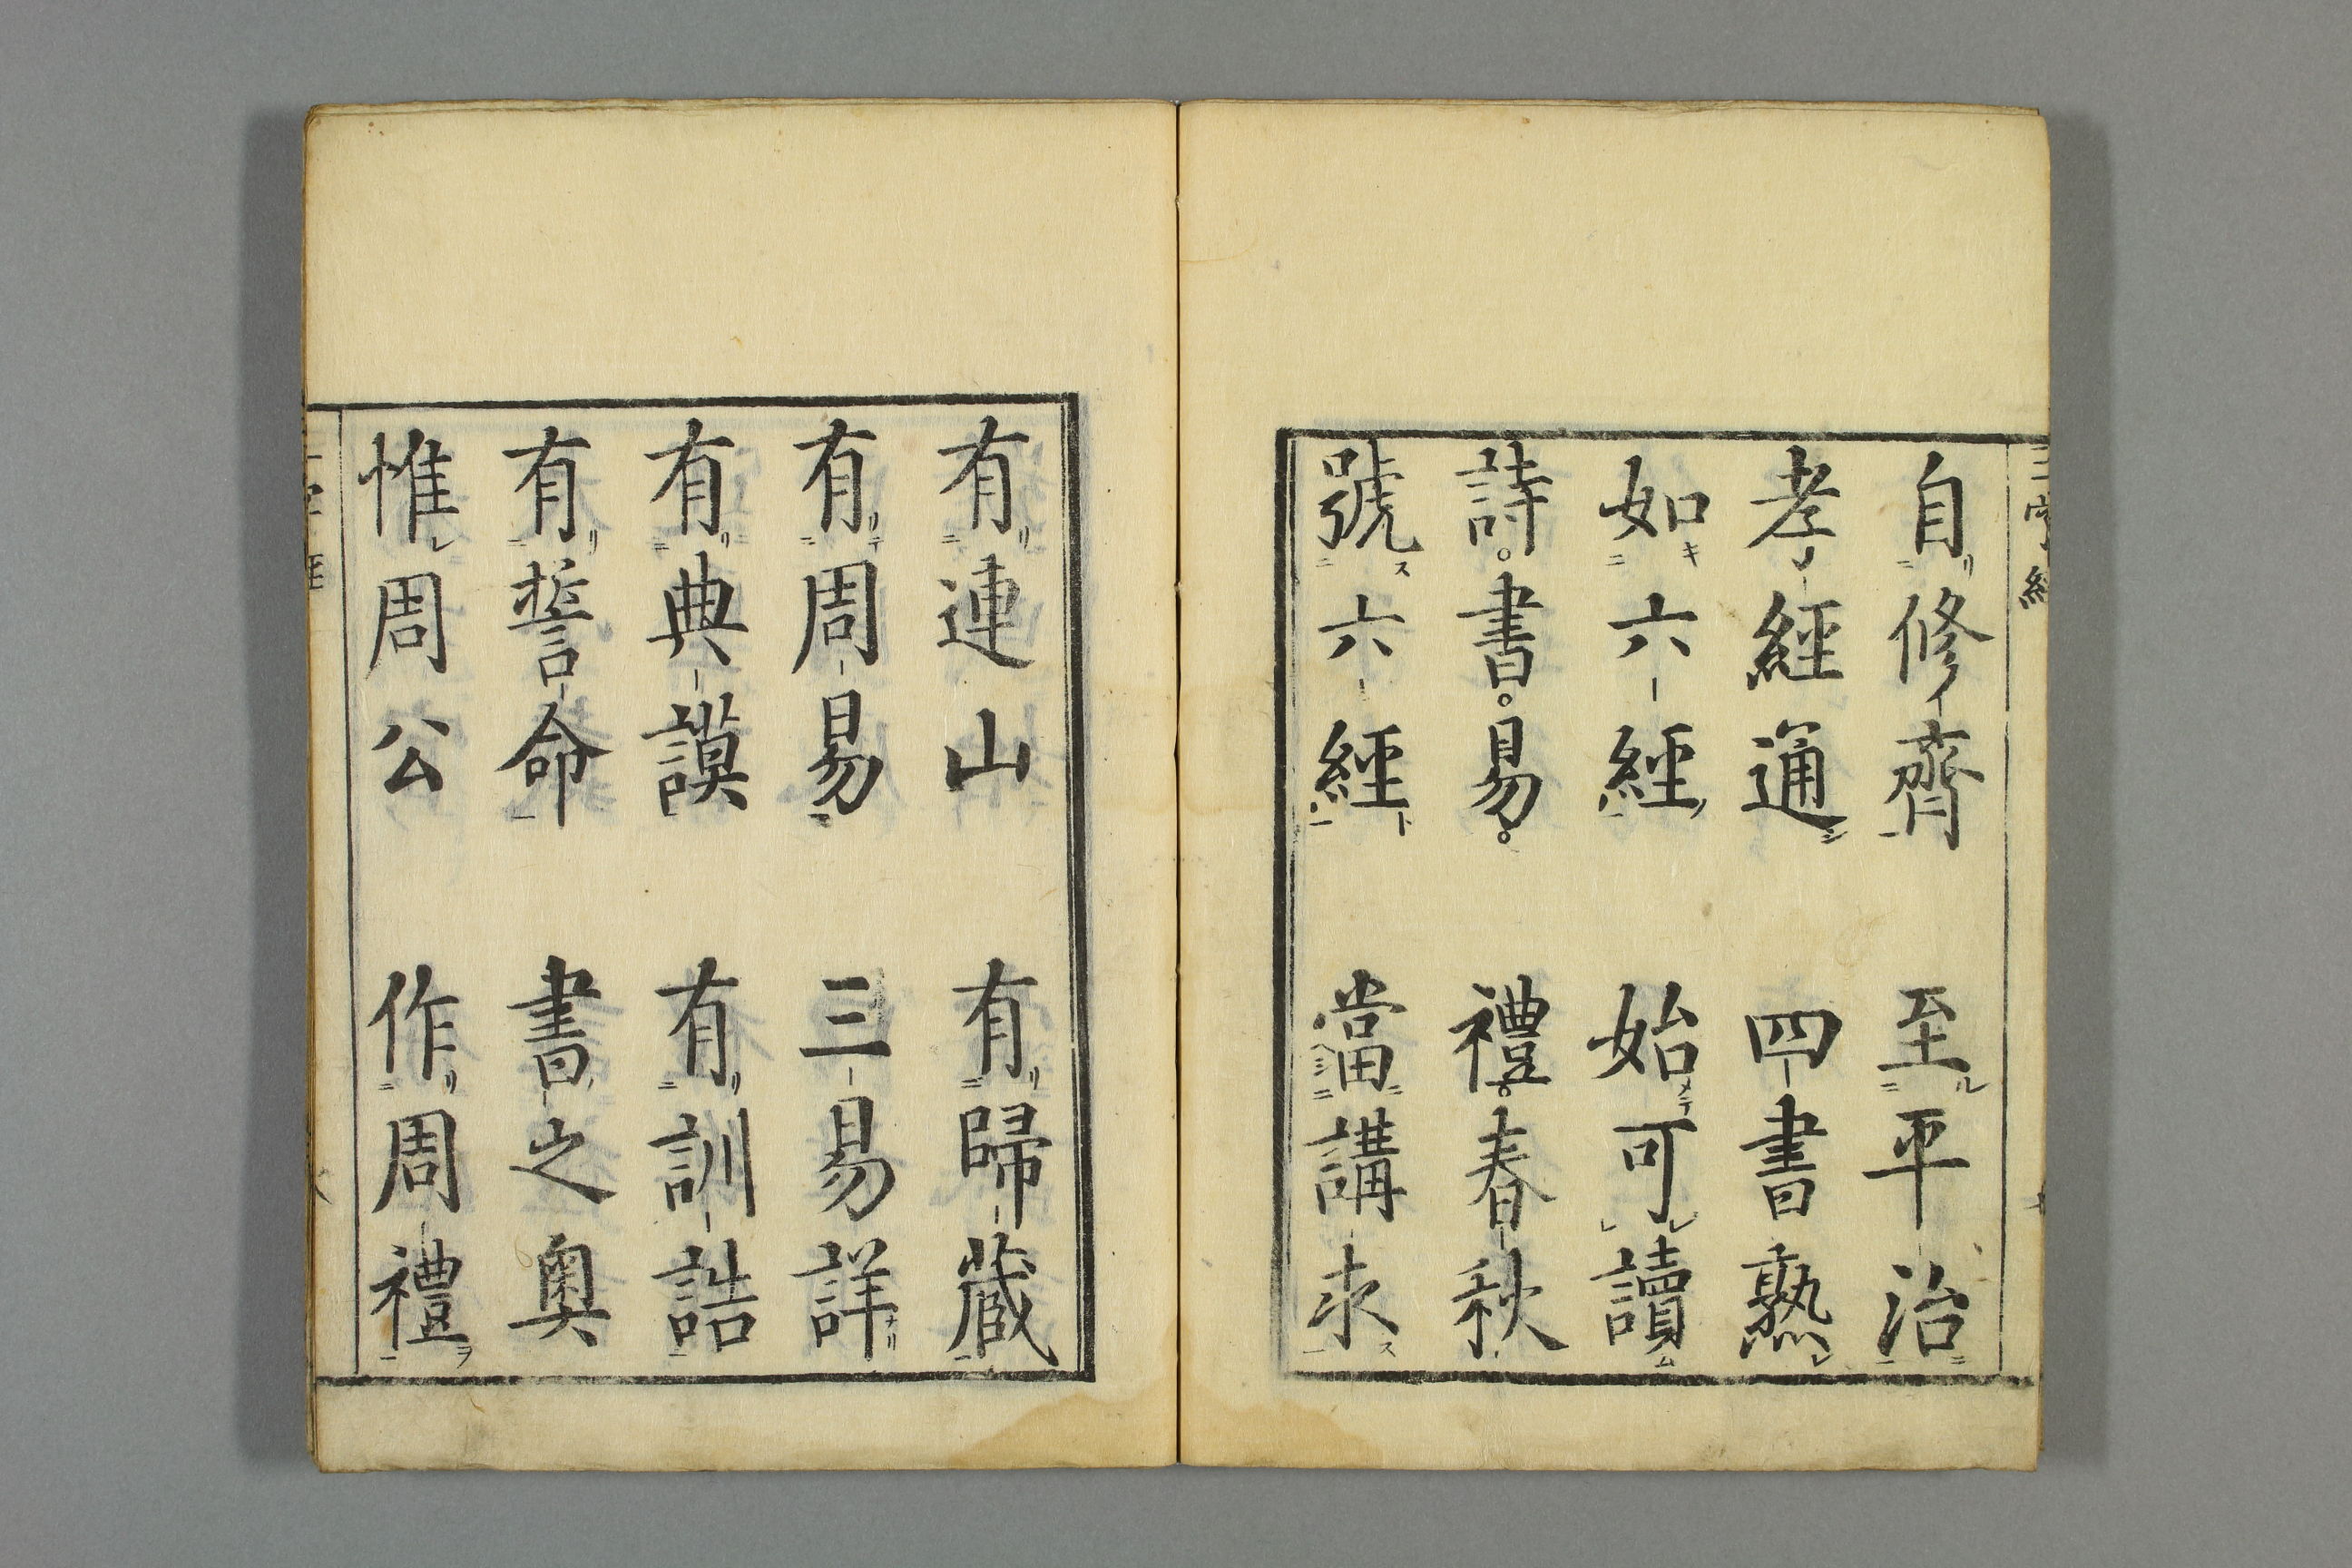 三字經
自修齊 至平治
孝經通 四書熟
如六經 始可讀
詩書易 禮春秋
號六經 當講求
有連山 有歸藏
有周易 三易詳
有典謨 有訓誥
有誓命 書之奥
惟周公 作周禮
三字經